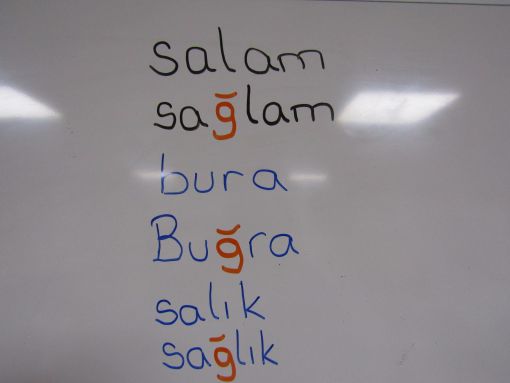 salam
sağlam
bura
Buğra
salık
sağlık